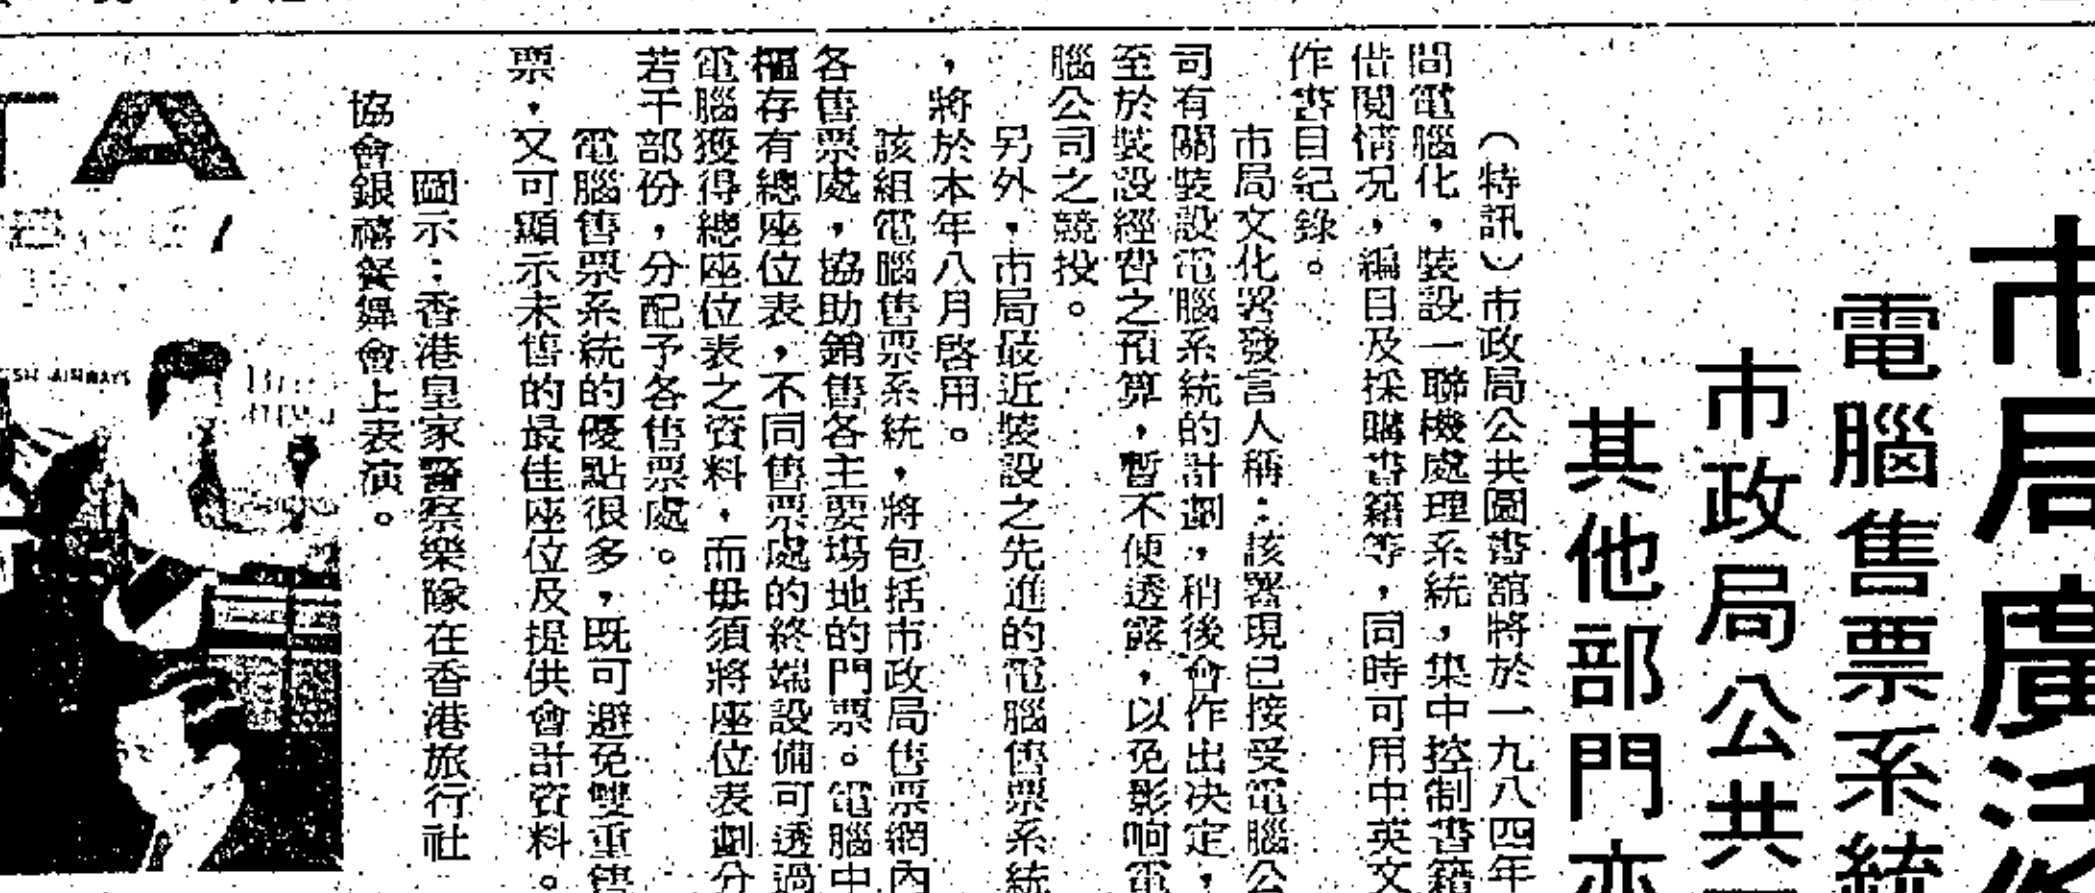 市局廣泛
電腦售票系統
市政局公共
其他部門亦
（特訊）市政局公共圖書館將於一九八四年
間電腦化，裝設一聯機處理系統，集中控制書籍
借閱情況，編目及採購書籍等，同時可用中英文
作書目紀錄。
市局文化署發言人稱：該署現已接受電腦公
司有關裝設電腦系統的計劃，稍後會作出決定，
至於裝設經費之預算，暫不便透露，以免影响電
腦公司之競投。
另外，市局最近裝設之先進的電腦售票系統
，將於本年八月啓用。
該組電腦售票系統，將包括市政局售票網內
各售票處，協助銷售各主要場地的門票。電腦中
樞存有總座位表，不同售票處的終端設備可透過
電腦獲得總座位表之資料，而毋須將座位表劃分
若干部份，分配予各售票處。
電腦售票系統的優點很多，既可避免雙重售
票，又可顯示未售的最佳座位及提供會計資料。
圖示：香港皇家警察樂隊在香港旅行社
協會銀禧餐舞會上表演。
TA
SH AIRWAYS